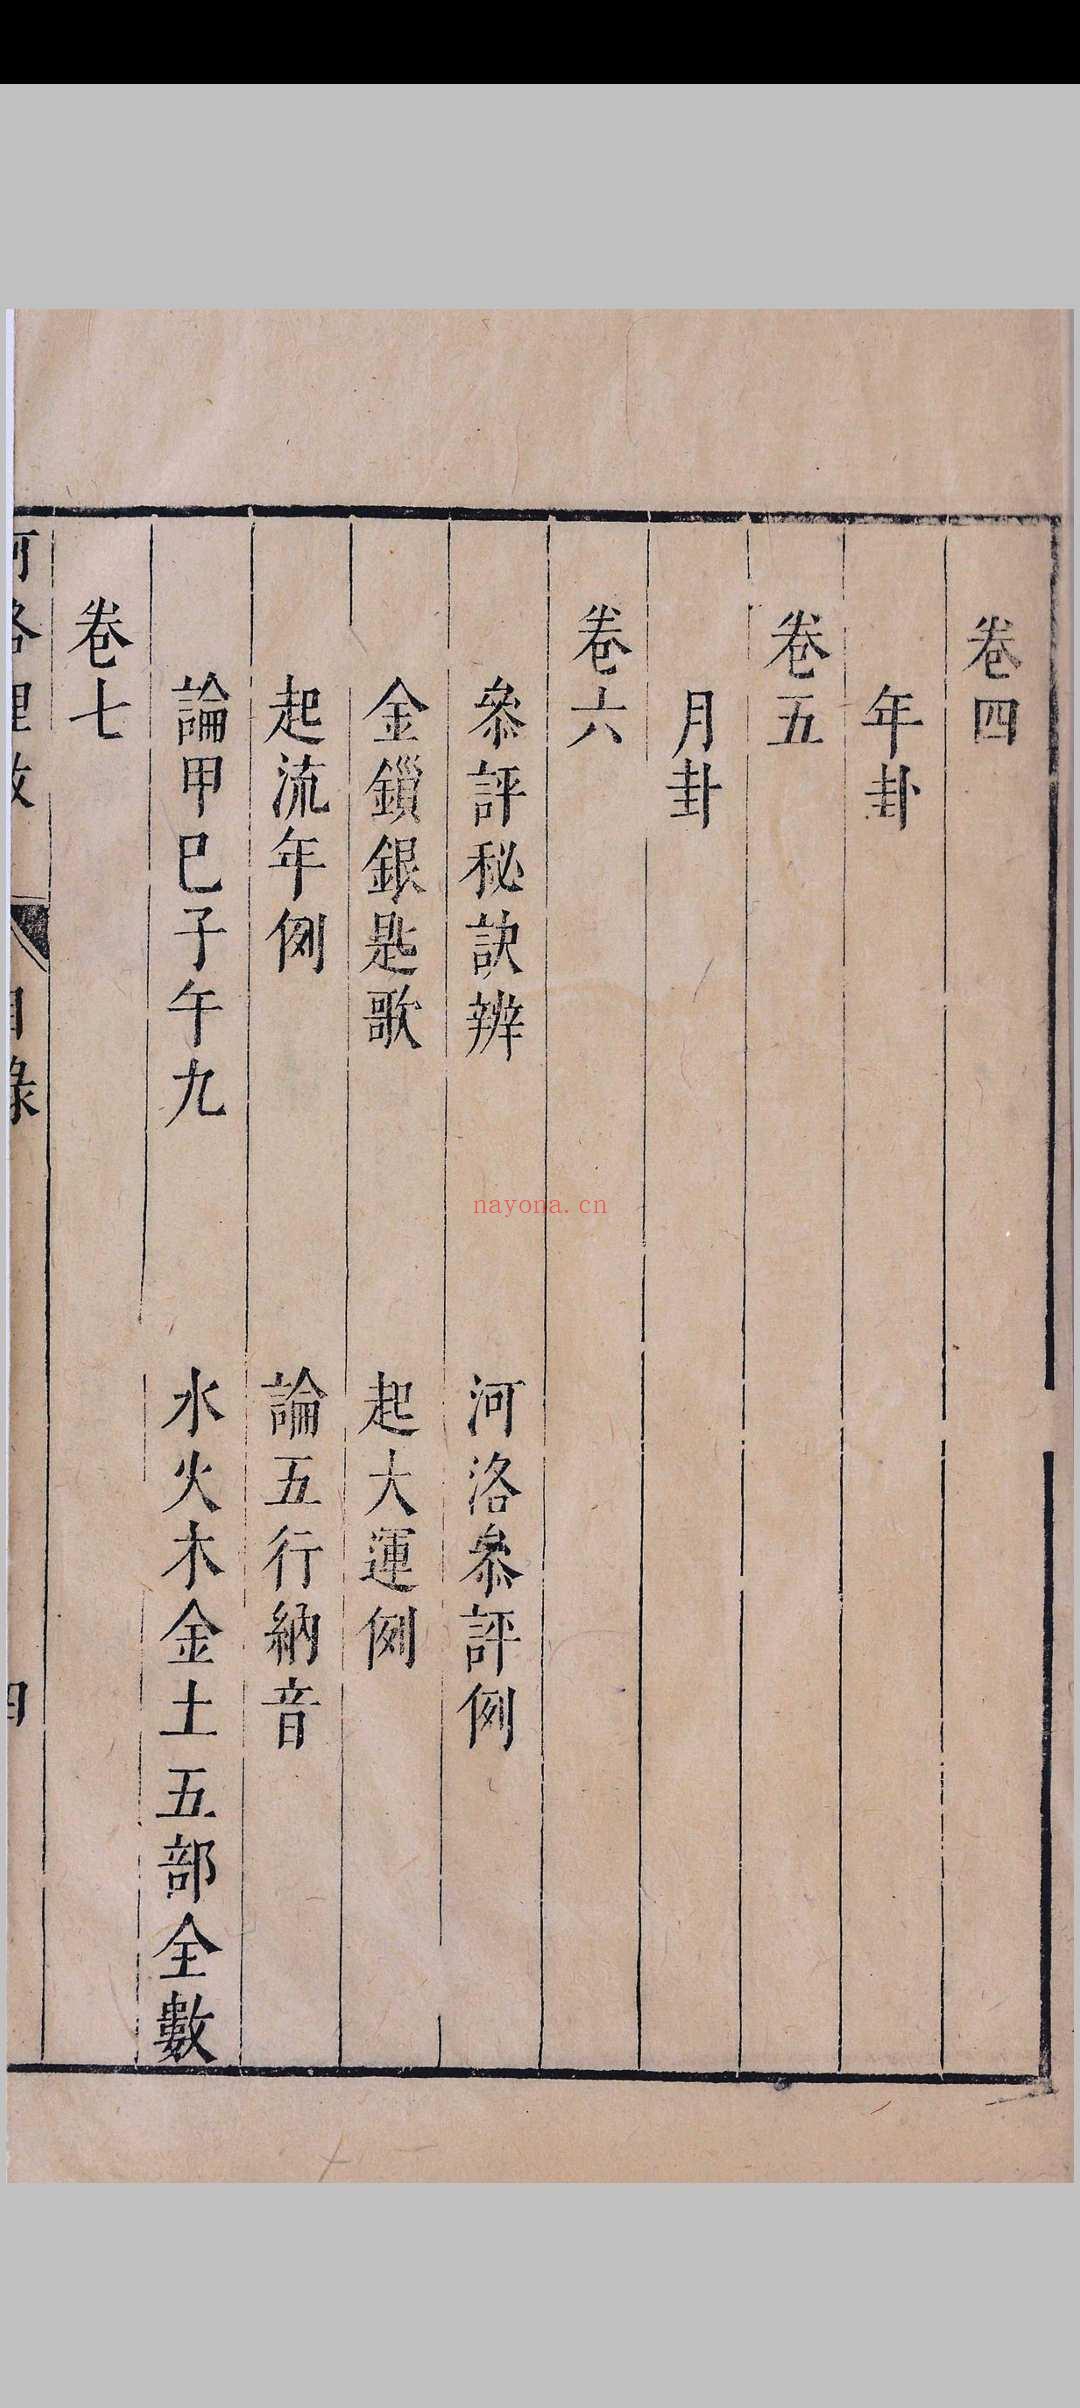 卷四
年卦
卷五
月卦
卷六
叅評秘訣辨
河洛叅評例
金鎖銀匙歌
起大運例
起流年例
論五行納音
論甲巳子午九
水火木金土五部全數
卷七
河洛理數
目錄
四
nayona.cn